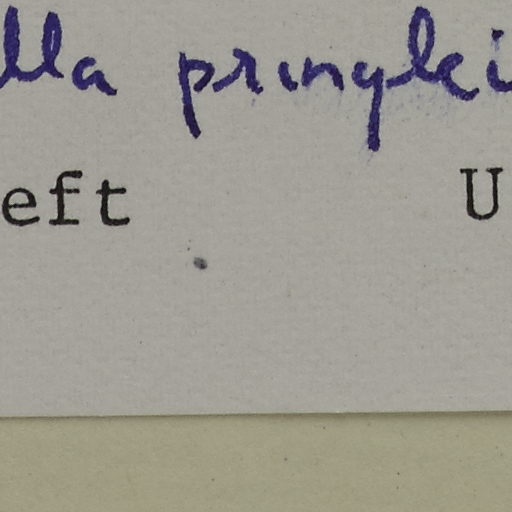 lla pringlei
eft U